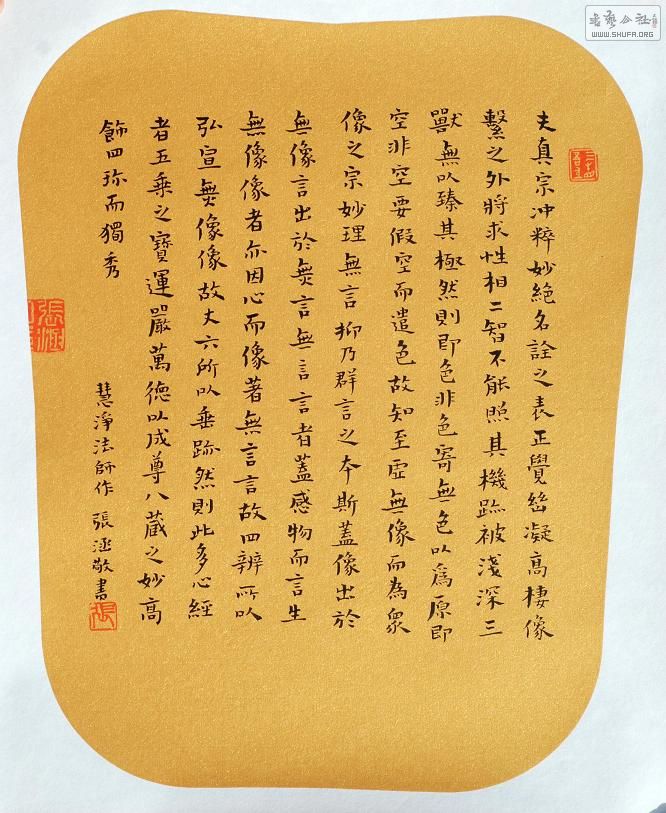 夫真宗冲粹妙絕名詮之表正覺幽凝高棲像
繫之外將求性相二智不能照其機跡被淺深三
獸無以臻其極然則即色非色寄無色以爲原即
空非空要假空而遣色故知至虛無像而為衆
像之宗妙理無言抑乃群言之本斯蓋像出於
無像言出於無言無言言者蓋感物而言生
無像像者亦因心而像著無言言故四辨所以
弘宣無像像故丈六所以垂跡然則此多心經
者五乘之寶運嚴萬德以成尊八藏之妙高
飾四珎而獨秀
慧淨法師作 張涵敬書
張涵
張
WWW.SHUFA.ORG